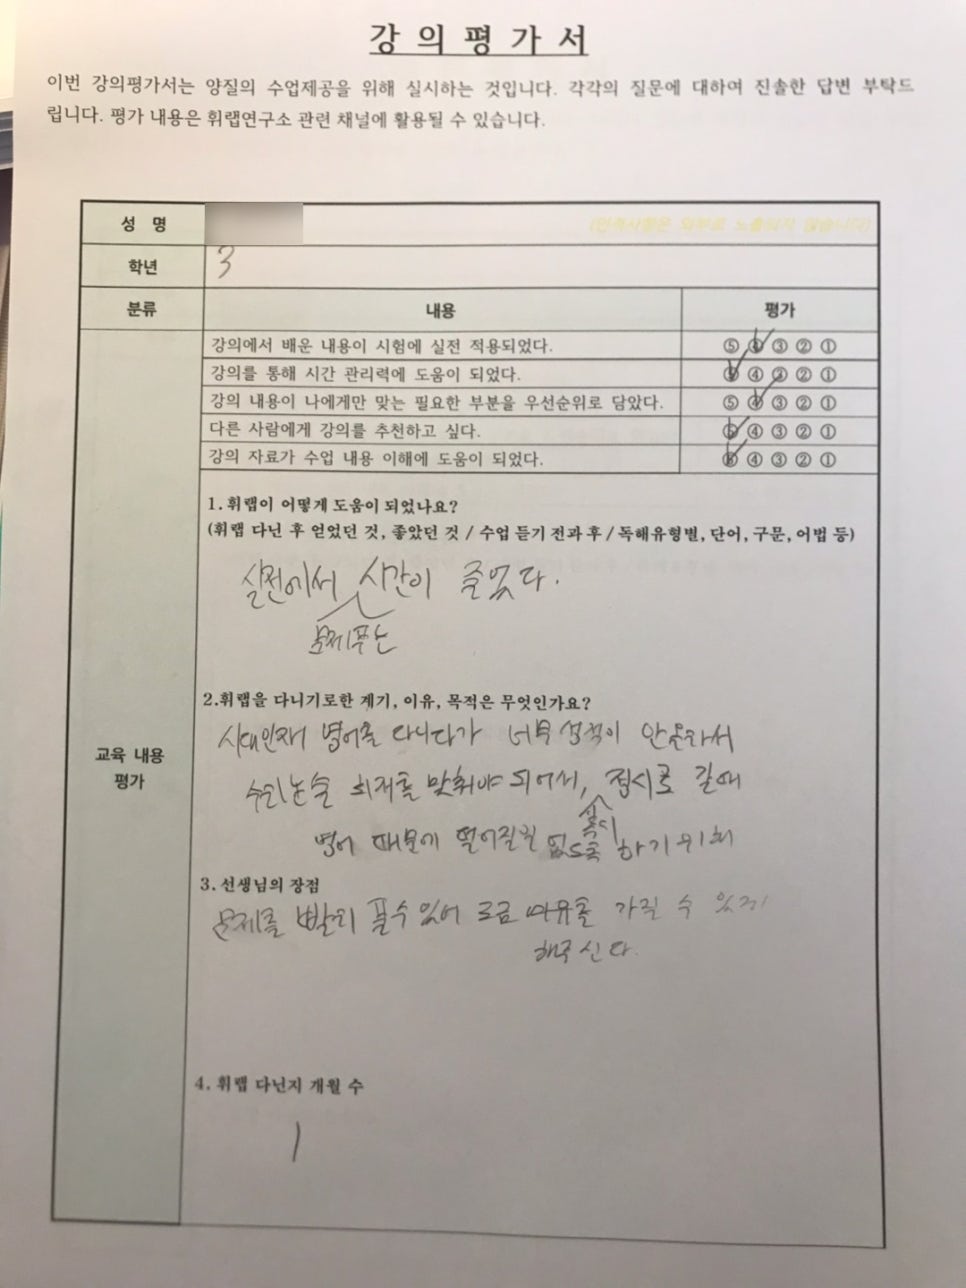 강 의 평 가 서
이번 강의평가서는 양질의 수업제공을 위해 실시하는 것입니다. 각각의 질문에 대하여 진솔한 답변 부탁드
립니다. 평가 내용은 휘랩연구소 관련 채널에 활용될 수 있습니다.
성 명
학년 3
분류 내용 평가
강의에서 배운 내용이 시험에 실전 적용되었다. ⑤ ④ ③ ② ①
강의를 통해 시간 관리력에 도움이 되었다. ⑤ ④ ③ ② ①
강의 내용이 나에게만 맞는 필요한 부분을 우선순위로 담았다. ⑤ ④ ③ ② ①
다른 사람에게 강의를 추천하고 싶다. ⑤ ④ ③ ② ①
강의 자료가 수업 내용 이해에 도움이 되었다. ⑤ ④ ③ ② ①
교육 내용
평가
1. 휘랩이 어떻게 도움이 되었나요?
(휘랩 다닌 후 얻었던 것, 좋았던 것 / 수업 듣기 전과 후 / 독해유형별, 단어, 구문, 어법 등)
실전에서 시간이 줄었다.
문제푸는
2.휘랩을 다니기로한 계기, 이유, 목적은 무엇인가요?
시대인재 영어를 다니다가 너무 성적이 안올라서
수리논술 최저를 맞춰야 되어서, 정시로 갈때
혹시
영어 때문에 떨어질일 없도록 하기위해
3. 선생님의 장점
문제를 빨리 풀수 있어 조금 여유를 가질 수 있게
해주신다.
4. 휘랩 다닌지 개월 수
1